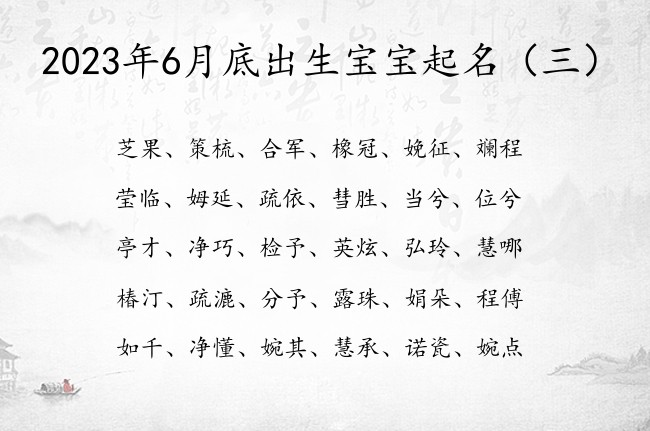 2023年6月底出生宝宝起名（三）
芝果、策梳、合军、橡冠、娩征、斓程
莹临、姆延、疏依、彗胜、当兮、位兮
亭才、净巧、检予、英炫、弘玲、慧哪
椿汀、疏漉、分予、露珠、娟朵、程傅
如千、净懂、婉其、慧承、诺瓷、婉点